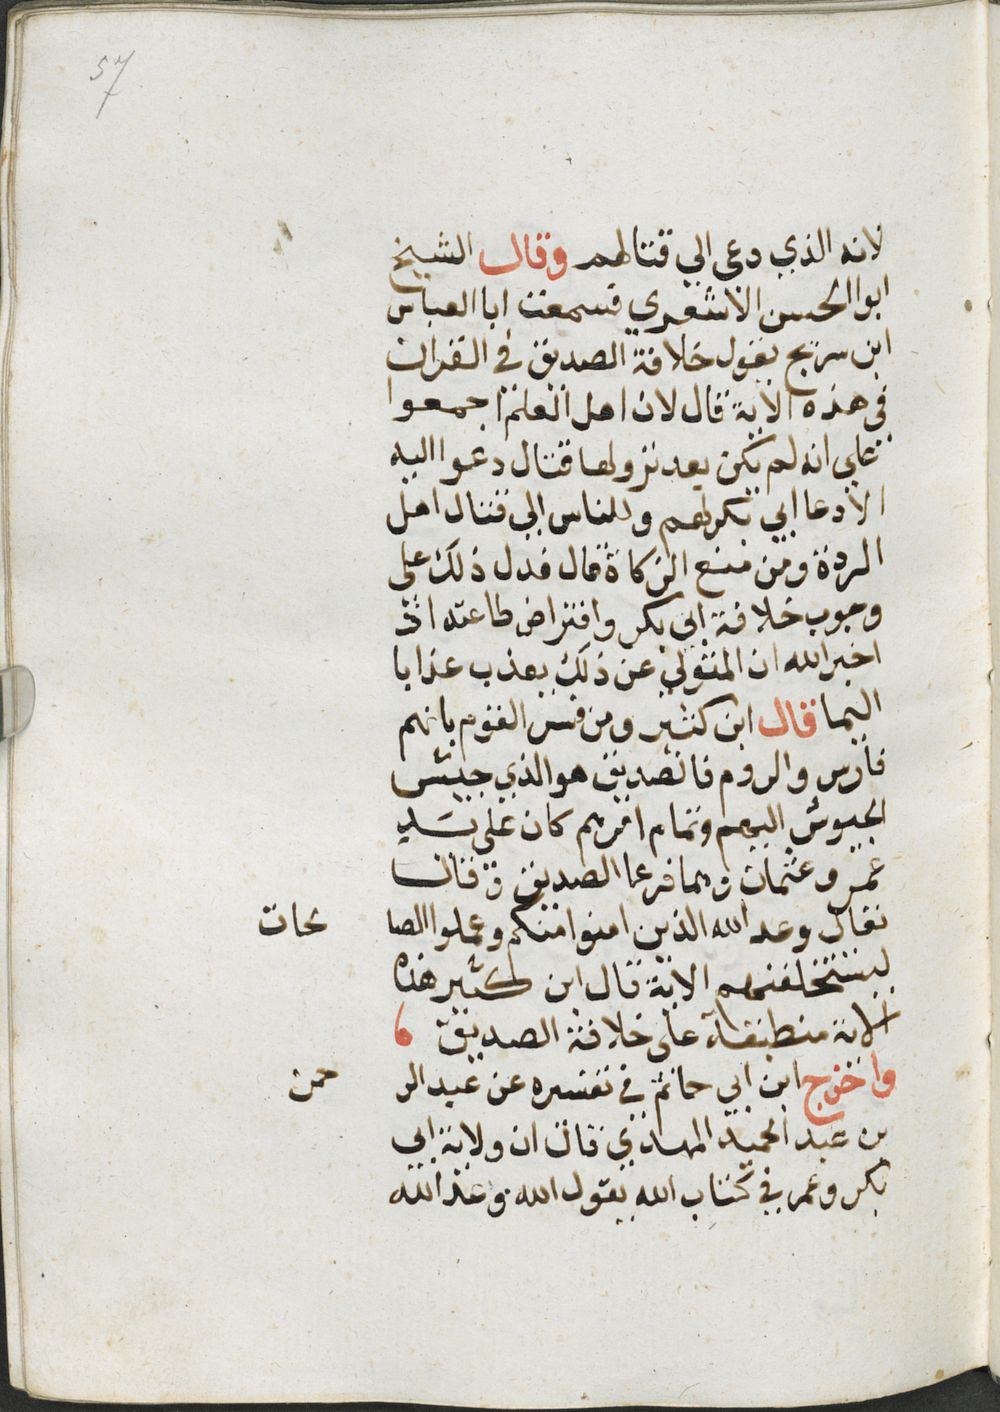 57
لانه الذي دعى الي قتالهم وقال الشيخ
ابوا الحسن الاشعري فسمعت ابا العباس
ابن سريج يقول خلافة الصديق في القران
في هذه الاية قال لان اهل العلم اجمعوا
علي انه لم يكن بعد نزولها قتال دعوا اليه
الادعا ابي بكر لهم وللناس الي قتال اهل
الردة ومن منع الزكاة قال فدل ذلك على
وجوب خلافة ابي بكر وافتراض طاعته اذ
اخبر الله ان المتولي عن ذلك يعذب عذابا
اليما قال ابن كثير ومن فسر القوم بانهم
فارس والروم فالصديق هو الذي جيش
الجيوش اليهم وتمام امرهم كان على يد
عمر وعثمان وهما فرعا الصديق وقال
تعالى وعد الله الذين امنوا منكم وعملوا الصا لحات
ليستخلفنهم الاية قال ابن كثير هذه
الاية منطبقة على خلافة الصديق
واخرج ابن ابي حاتم في تفسيره عن عبد الر حمن
بن عبد الحميد المهدي قال ان ولاية ابي
بكر وعمر في كتاب الله يقول الله وعد الله